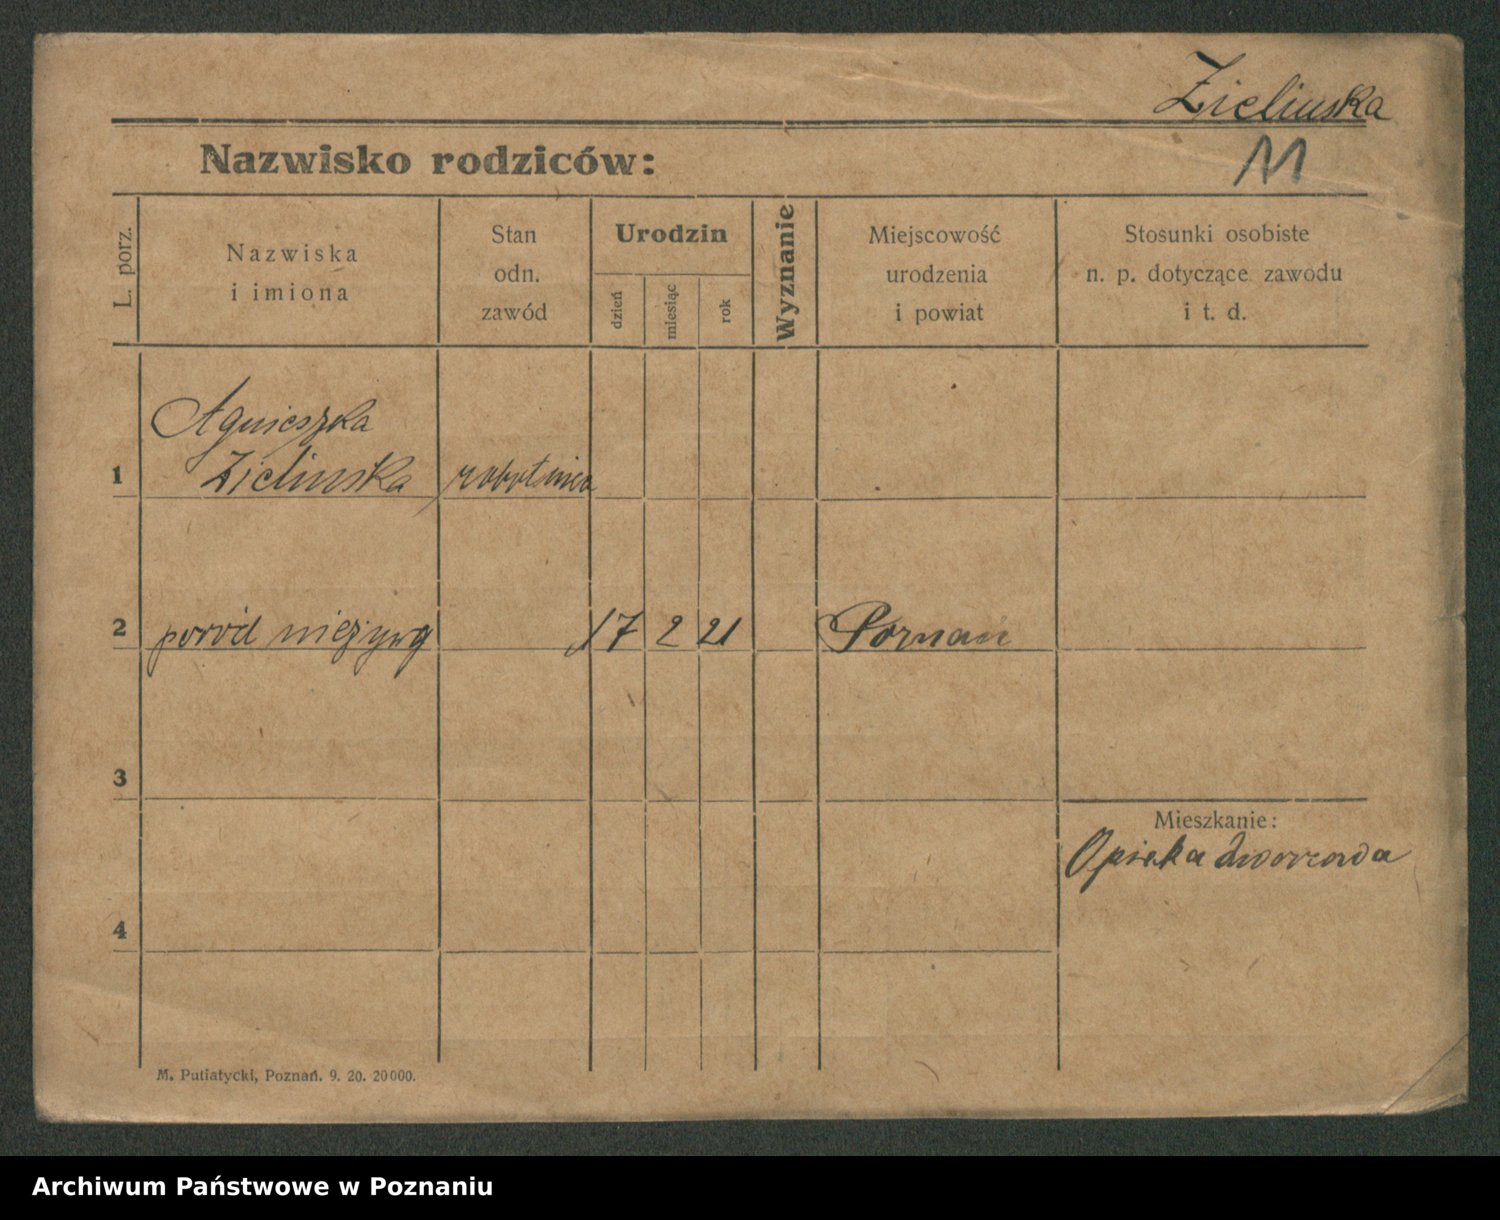 Zielinska
M
Nazwisko rodziców:
L. porz.
Nazwiska
i imiona
Stan
odn.
zawód
Urodzin
dzień
miesiąc
rok
Wyznanie
Miejscowość
urodzenia
i powiat
Stosunki osobiste
n. p. dotyczące zawodu
i t. d.
Agnieszka
1 Zielinska robotnica
2 poród nieżywy 17 2 21 Poznań
3
Mieszkanie:
Opieka dworcowa
4
M. Putiatycki, Poznań. 9. 20. 20000.
Archiwum Państwowe w Poznaniu